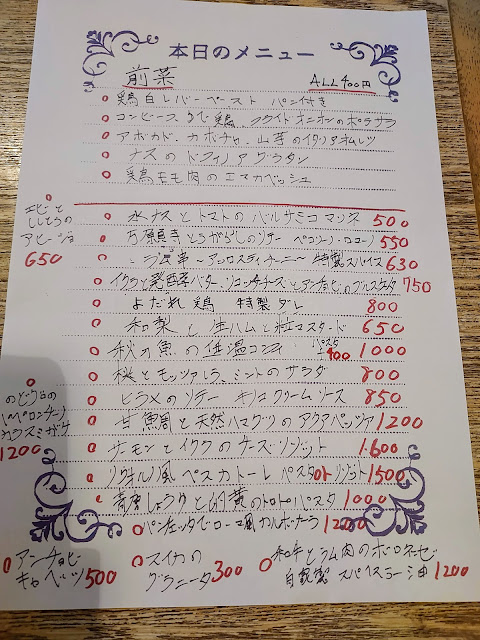 本日のメニュー
前菜 ALL400円
鶏白レバーペースト パン付き
コンビーフ、ゆで鶏、フライドオニオンのポテサラ
アボカド、カボチャ、山芋のイタリアオムレツ
ナスのドフィノアグラタン
鶏モモ肉のエマカベッシュ
エビと
ししとうの
アヒージョ
650
水ナスとトマトのバルサミコマリネ 500
万願寺とうがらしのソテー ペコリーノ・ロマーノ 550
〜アロスティチーニ〜 特製スパイス 630
イクラと発酵バター、リコッタチーズとアンチョビのブルスケッタ 750
よだれ鶏 特製ダレ 800
和梨と生ハムと粒マスタード 650
秋の魚の低温コンフィ パスタ +400 1000
桃とモッツァレラ、ミントのサラダ 800
ヒラメのソテー キノコクリームソース 850
のどぐろの
ペペロンチーノ
カラスミがけ
1200
甘鯛と天然ハマグリのアクアパッツァ 1200
サーモンとイクラのチーズリゾット 1600
リグーリア風 ペスカトーレ パスタorリゾット 1500
青唐しょうゆと卵黄のトロトロパスタ 1000
パンチェッタでローマ風カルボナーラ 1200
アンチョビ
キャベツ 500
スイカの
グラニータ 300
和牛とラム肉のボロネーゼ
自家製 スパイスラー油 1200